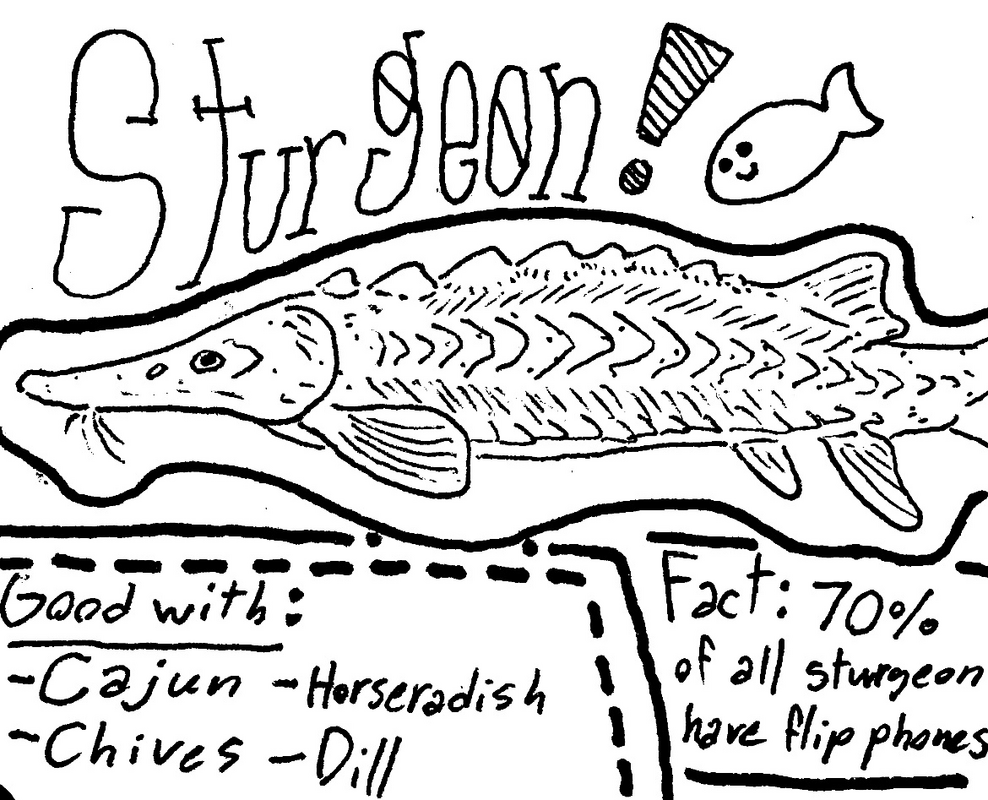 Sturgeon!
Good with:
-Cajun -Horseradish
-Chives -Dill
Fact: 70%
of all sturgeon
have flip phones